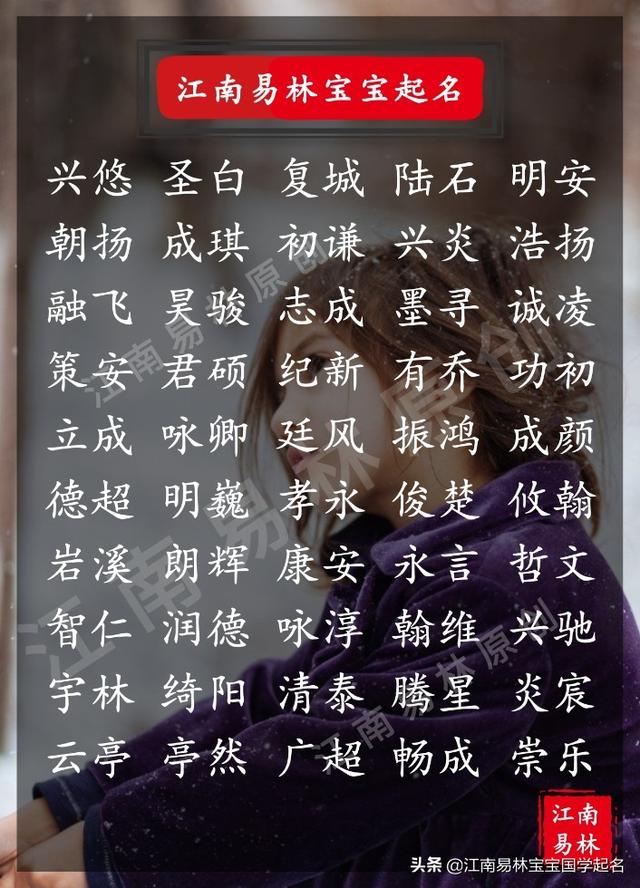 江南易林宝宝起名
兴悠 圣白 复城 陆石 明安
朝扬 成琪 初谦 兴炎 浩扬
融飞 昊骏 志成 墨寻 诚凌
策安 君硕 纪新 有乔 功初
立成 咏卿 廷风 振鸿 成颜
德超 明巍 孝永 俊楚 攸翰
岩溪 朗辉 康安 永言 哲文
智仁 润德 咏淳 翰维 兴驰
宇林 绮阳 清泰 腾星 炎宸
云亭 亭然 广超 畅成 崇乐
江南易林原创
江南易林原创
江南易林原创
江南
易林
头条 @江南易林宝宝国学起名